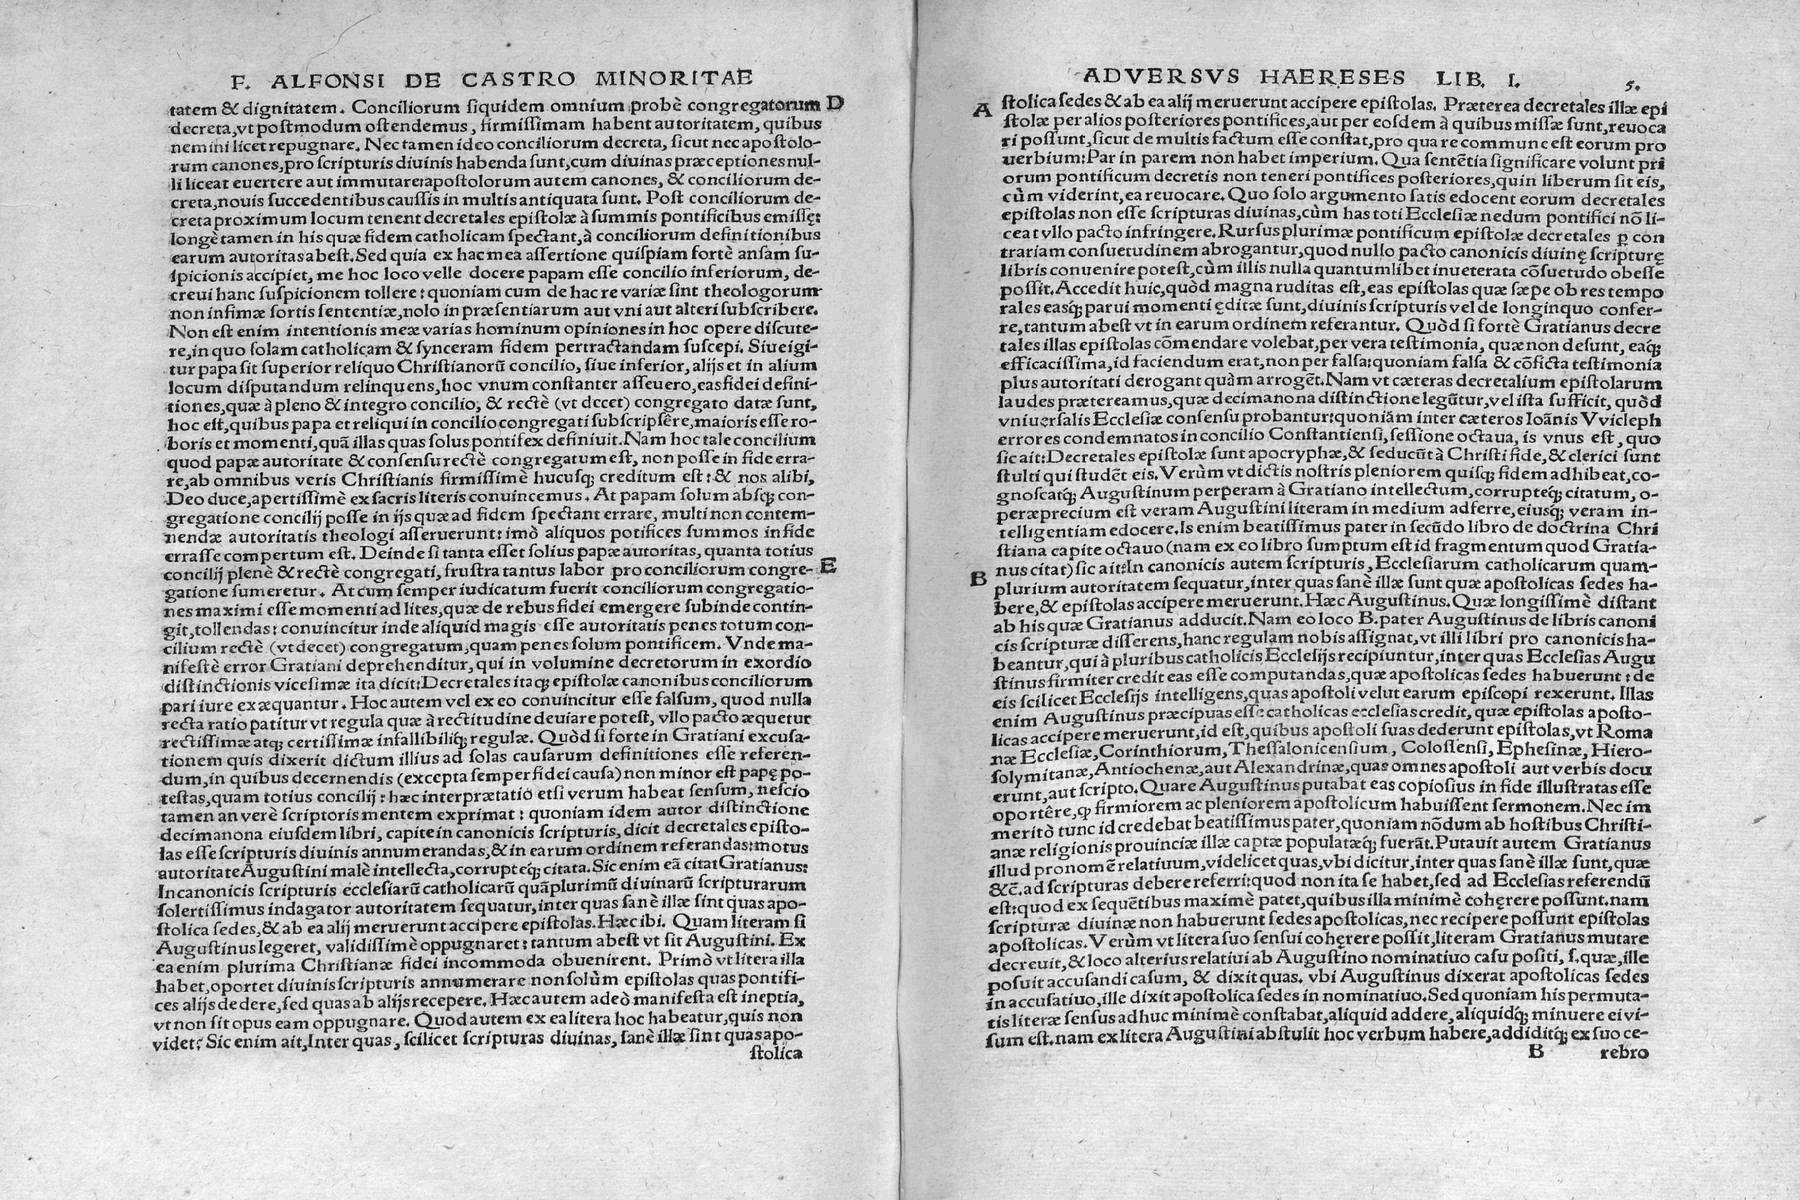 F. ALFONSI DE CASTRO MINORITAE
tatem & dignitatem. Conciliorum siquidem omnium probè congregatorum D
decreta, vt postmodum ostendemus, firmissimam habent autoritatem, quibus
nemini licet repugnare. Nec tamen ideo conciliorum decreta, sicut nec apostolo-
rum canones, pro scripturis diuinis habenda sunt, cum diuinas præceptiones nul-
li liceat euertere aut immutare: apostolorum autem canones, & conciliorum de-
creta, nouis succedentibus caussis in multis antiquata sunt. Post conciliorum de-
creta proximum locum tenent decretales epistolæ à summis pontificibus emissę:
longè tamen in his quæ fidem catholicam spectant, à conciliorum definitionibus
earum autoritas abest. Sed quia ex hac mea assertione quispiam fortè ansam su-
spicionis accipiet, me hoc loco velle docere papam esse concilio inferiorum, de-
creui hanc suspicionem tollere: quoniam cum de hac re variæ sint theologorum
non infimæ sortis sententiæ, nolo in præsentiarum aut vni aut alteri subscribere.
Non est enim intentionis meæ varias hominum opiniones in hoc opere discute-
re, in quo solam catholicam & synceram fidem pertractandam suscepi. Siue igi-
tur papa sit superior reliquo Christianorũ concilio, siue inferior, alijs et in alium
locum disputandum relinquens, hoc vnum constanter asseuero, eas fidei defini-
tiones, quæ à pleno & integro concilio, & rectè (vt decet) congregato datæ sunt,
hoc est, quibus papa et reliqui in concilio congregati subscripsêre, maioris esse ro-
boris et momenti, quã illas quas solus pontifex definiuit. Nam hoc tale concilium
quod papæ autoritate & consensu rectè congregatum est, non posse in fide erra-
re, ab omnibus veris Christianis firmissimè hucusq; creditum est: & nos alibi,
Deo duce, apertissimè ex sacris literis conuincemus. At papam solum absq; con-
gregatione concilij posse in ijs quæ ad fidem spectant errare, multi non contem-
nendæ autoritatis theologi asseruerunt: imò aliquos potifices summos in fide
errasse compertum est. Deinde si tanta esset solius papæ autoritas, quanta totius
concilij plenè & rectè congregati, frustra tantus labor pro conciliorum congre- E
gatione sumeretur. At cum semper iudicatum fuerit conciliorum congregatio-
nes maximi esse momenti ad lites, quæ de rebus fidei emergere subinde contin-
git, tollendas: conuincitur inde aliquid magis esse autoritatis penes totum con-
cilium rectè (vt decet) congregatum, quam penes solum pontificem. Vnde ma-
nifestè error Gratiani deprehenditur, qui in volumine decretorum in exordio
distinctionis vicesimæ ita dicit: Decretales itaq; epistolæ canonibus conciliorum
pari iure exæquantur. Hoc autem vel ex eo conuincitur esse falsum, quod nulla
recta ratio patitur vt regula quæ à rectitudine deuiare potest, vllo pacto æquetur
rectissimæ atq; certissimæ infallibiliq; regulæ. Quòd si forte in Gratiani excusa-
tionem quis dixerit dictum illius ad solas causarum definitiones esse referen-
dum, in quibus decernendis (excepta semper fidei causa) non minor est papę po-
testas, quam totius concilij: hæc interprætatio etsi verum habeat sensum, nescio
tamen an verè scriptoris mentem exprimat: quoniam idem autor distinctione
decimanona eiusdem libri, capite in canonicis scripturis, dicit decretales episto-
las esse scripturis diuinis annumerandas, & in earum ordinem referandas: motus
autoritate Augustini malè intellecta, corrupteq; citata. Sic enim eã citat Gratianus:
In canonicis scripturis ecclesiarũ catholicarũ quãplurimũ diuinarũ scripturarum
solertissimus indagator autoritatem sequatur, inter quas sanè illæ sint quas apo-
stolica sedes, & ab ea alij meruerunt accipere epistolas. Hæc ibi. Quam literam si
Augustinus legeret, validissimè oppugnaret: tantum abest vt sit Augustini. Ex
ea enim plurima Christianæ fidei incommoda obuenirent. Primò vt litera illa
habet, oportet diuinis scripturis annumerare non solùm epistolas quas pontifi-
ces alijs dedere, sed quas ab alijs recepere. Hæc autem adeò manifesta est ineptia,
vt non sit opus eam oppugnare. Quod autem ex ea litera hoc habeatur, quis non
videt? Sic enim ait, Inter quas, scilicet scripturas diuinas, sanè illæ sint quas apo-
stolica
ADVERSVS HAERESES LIB. I. 5.
A stolica sedes & ab ea alij meruerunt accipere epistolas. Præterea decretales illæ epi
stolæ per alios posteriores pontifices, aut per eosdem à quibus missæ sunt, reuoca
ri possunt, sicut de multis factum esse constat, pro qua re commune est eorum pro
uerbium: Par in parem non habet imperium. Qua sentẽtia significare volunt pri
orum pontificum decretis non teneri pontifices posteriores, quin liberum sit eis,
cùm viderint, ea reuocare. Quo solo argumento satis edocent eorum decretales
epistolas non esse scripturas diuinas, cùm has toti Ecclesiæ nedum pontifici nõ li-
ceat vllo pacto infringere. Rursus plurimæ pontificum epistolæ decretales ꝑ con
trariam consuetudinem abrogantur, quod nullo pacto canonicis diuinę scripturę
libris conuenire potest, cùm illis nulla quantumlibet inueterata cõsuetudo obesse
possit. Accedit huic, quòd magna ruditas est, eas epistolas quæ sæpe ob res tempo
rales easq; parui momenti ęditæ sunt, diuinis scripturis vel de longinquo confer-
re, tantum abest vt in earum ordinem referantur. Quòd si fortè Gratianus decre
tales illas epistolas cõmendare volebat, per vera testimonia, quæ non desunt, eaq;
efficacissima, id faciendum erat, non per falsa: quoniam falsa & cõficta testimonia
plus autoritati derogant quàm arrogẽt. Nam vt cæteras decretalium epistolarum
laudes prætereamus, quæ decimanona distinctione legũtur, vel ista sufficit, quòd
vniuersalis Ecclesiæ consensu probantur: quoniãm inter cæteros Ioãnis Vvicleph
errores condemnatos in concilio Constantiensi, sessione octaua, is vnus est, quo
sic ait: Decretales epistolæ sunt apocryphæ, & seducũt à Christi fide, & clerici sunt
stulti qui studẽt eis. Verùm vt dictis nostris pleniorem quisq; fidem adhibeat, co-
gnoscatq; Augustinum perperam à Gratiano intellectum, corrupteq; citatum, o-
peræprecium est veram Augustini literam in medium adferre, eiusq; veram in-
telligentiam edocere. Is enim beatissimus pater in secũdo libro de doctrina Chri
stiana capite octauo (nam ex eo libro sumptum est id fragmentum quod Gratia-
nus citat) sic ait: In canonicis autem scripturis, Ecclesiarum catholicarum quam-
B plurium autoritatem sequatur, inter quas sanè illæ sunt quæ apostolicas sedes ha-
bere, & epistolas accipere meruerunt. Hæc Augustinus. Quæ longissimè distant
ab his quæ Gratianus adducit. Nam eo loco B. pater Augustinus de libris canoni
cis scripturæ disserens, hanc regulam nobis assignat, vt illi libri pro canonicis ha-
beantur, qui à pluribus catholicis Ecclesijs recipiuntur, inter quas Ecclesias Augu
stinus firmiter credit eas esse computandas, quæ apostolicas sedes habuerunt: de
eis scilicet Ecclesijs intelligens, quas apostoli velut earum episcopi rexerunt. Illas
enim Augustinus præcipuas esse catholicas ecclesias credit, quæ epistolas aposto-
licas accipere meruerunt, id est, quibus apostoli suas dederunt epistolas, vt Roma
næ Ecclesiæ, Corinthiorum, Thessalonicensium, Colossensi, Ephesinæ, Hiero-
solymitanæ, Antiochenæ, aut Alexandrinæ, quas omnes apostoli aut verbis docu
erunt, aut scripto. Quare Augustinus putabat eas copiosius in fide illustratas esse
oportêre, ꝙ firmiorem ac pleniorem apostolicum habuissent sermonem. Nec im
meritò tunc id credebat beatissimus pater, quoniam nõdum ab hostibus Christi-
anæ religionis prouinciæ illæ captæ populatæq; fuerãt. Putauit autem Gratianus
illud pronomẽ relatiuum, videlicet quas, vbi dicitur, inter quas sanè illæ sunt, quæ
&c̃. ad scripturas debere referri: quod non ita se habet, sed ad Ecclesias referendũ
est: quod ex sequẽtibus maximè patet, quibus illa minimè cohęrere possunt. nam
scripturæ diuinæ non habuerunt sedes apostolicas, nec recipere possunt epistolas
apostolicas. Verùm vt litera suo sensui cohęrere possit, literam Gratianus mutare
decreuit, & loco alterius relatiui ab Augustino nominatiuo casu positi, s. quæ, ille
posuit accusandi casum, & dixit quas. vbi Augustinus dixerat apostolicas sedes
in accusatiuo, ille dixit apostolica sedes in nominatiuo. Sed quoniam his permuta-
tis literæ sensus adhuc minimè constabat, aliquid addere, aliquidq; minuere ei vi-
sum est. nam ex litera Augustini abstulit hoc verbum habere, addiditq; ex suo ce-
B rebro